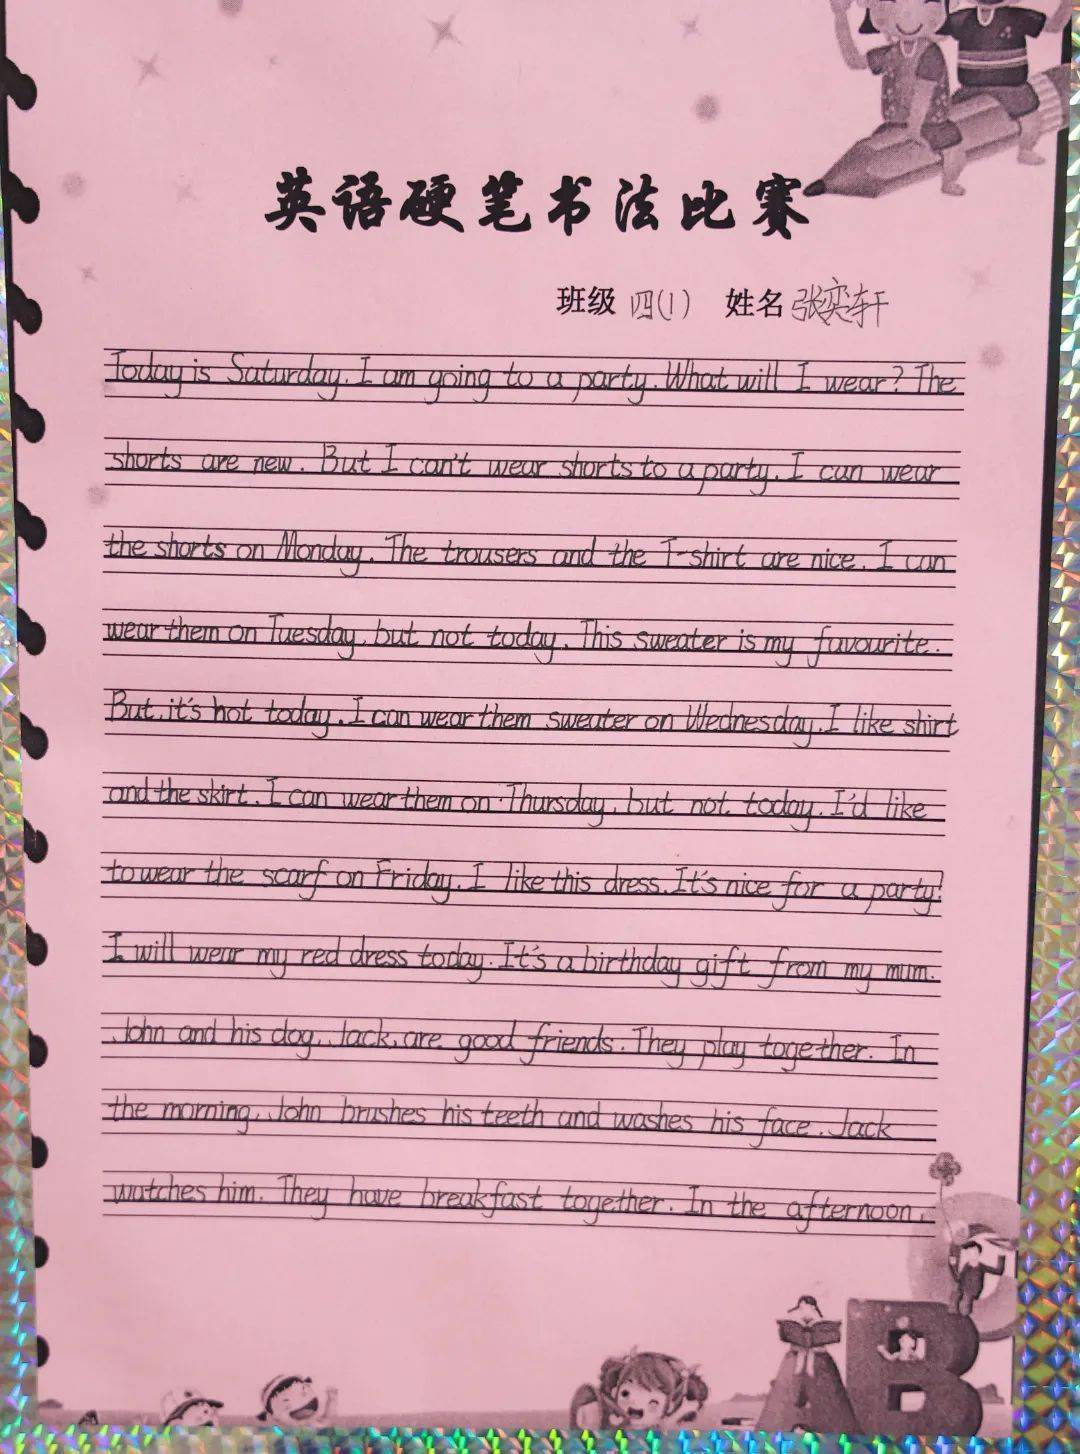 英语硬笔书法比赛
班级 四(1) 姓名 张奕轩
Today is Saturday. I am going to a party. What will I wear? The
shorts are new. But I can't wear shorts to a party. I can wear
the shorts on Monday. The trousers and the T-shirt are nice. I can
wear them on Tuesday, but not today. This sweater is my favourite.
But, it's hot today. I can wear them sweater on Wednesday. I like shirt
and the skirt. I can wear them on Thursday, but not today. I'd like
to wear the scarf on Friday. I like this dress. It's nice for a party!
I will wear my red dress today. It's a birthday gift from my mum.
John and his dog, Jack, are good friends. They play together. In
the morning, John brushes his teeth and washes his face. Jack
watches him. They have breakfast together. In the afternoon,
A B